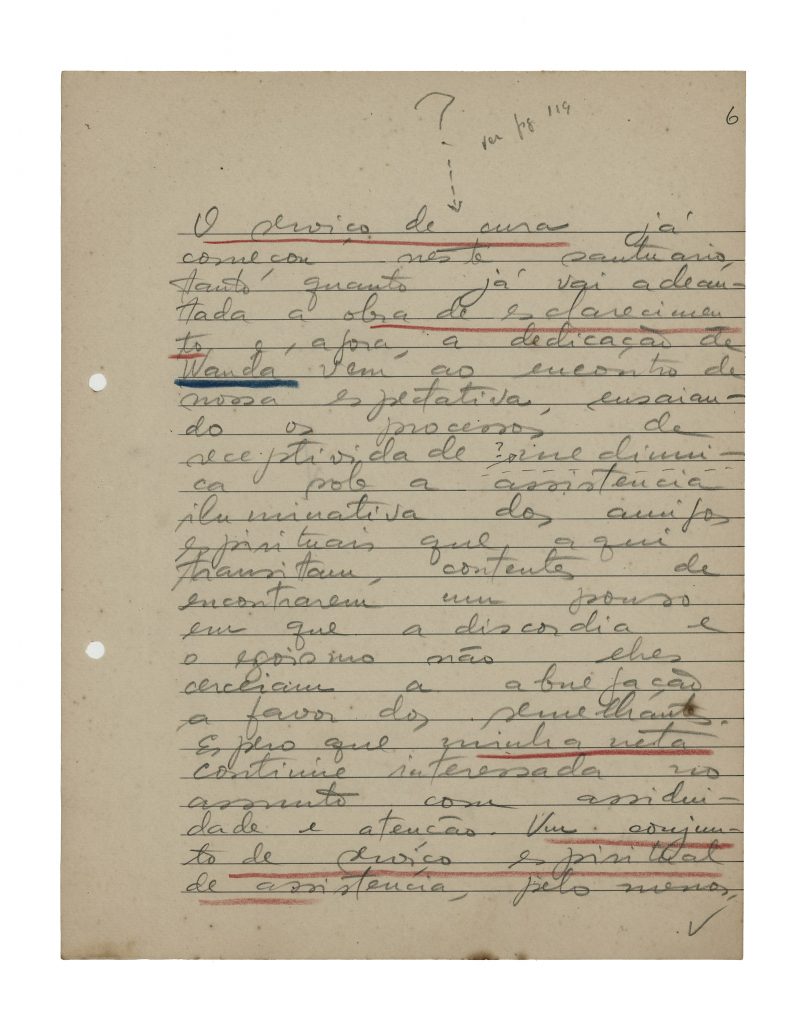 ?
ver pg 119
6
O serviço de cura já
começou neste santuario,
tanto quanto já vai adean-
tada a obra de esclarecimen-
to, e, agora, a dedicação de
Wanda vem ao encontro de
nossa espectativa, ensaian-
do os processos de
receptividade ?
ca sob a assistencia
iluminativa dos amigos
espirituais que aqui
transitam, contentes de
encontrarem um pouso
em que a discordia e
o egoismo não lhes
cerceiam a abnegação
a favor dos semelhantes.
Espero que minha neta
continue interessada no
assunto com assidui-
dade e atenção. Um conjun-
to de serviço espiritual
de assistencia, pelo menos,